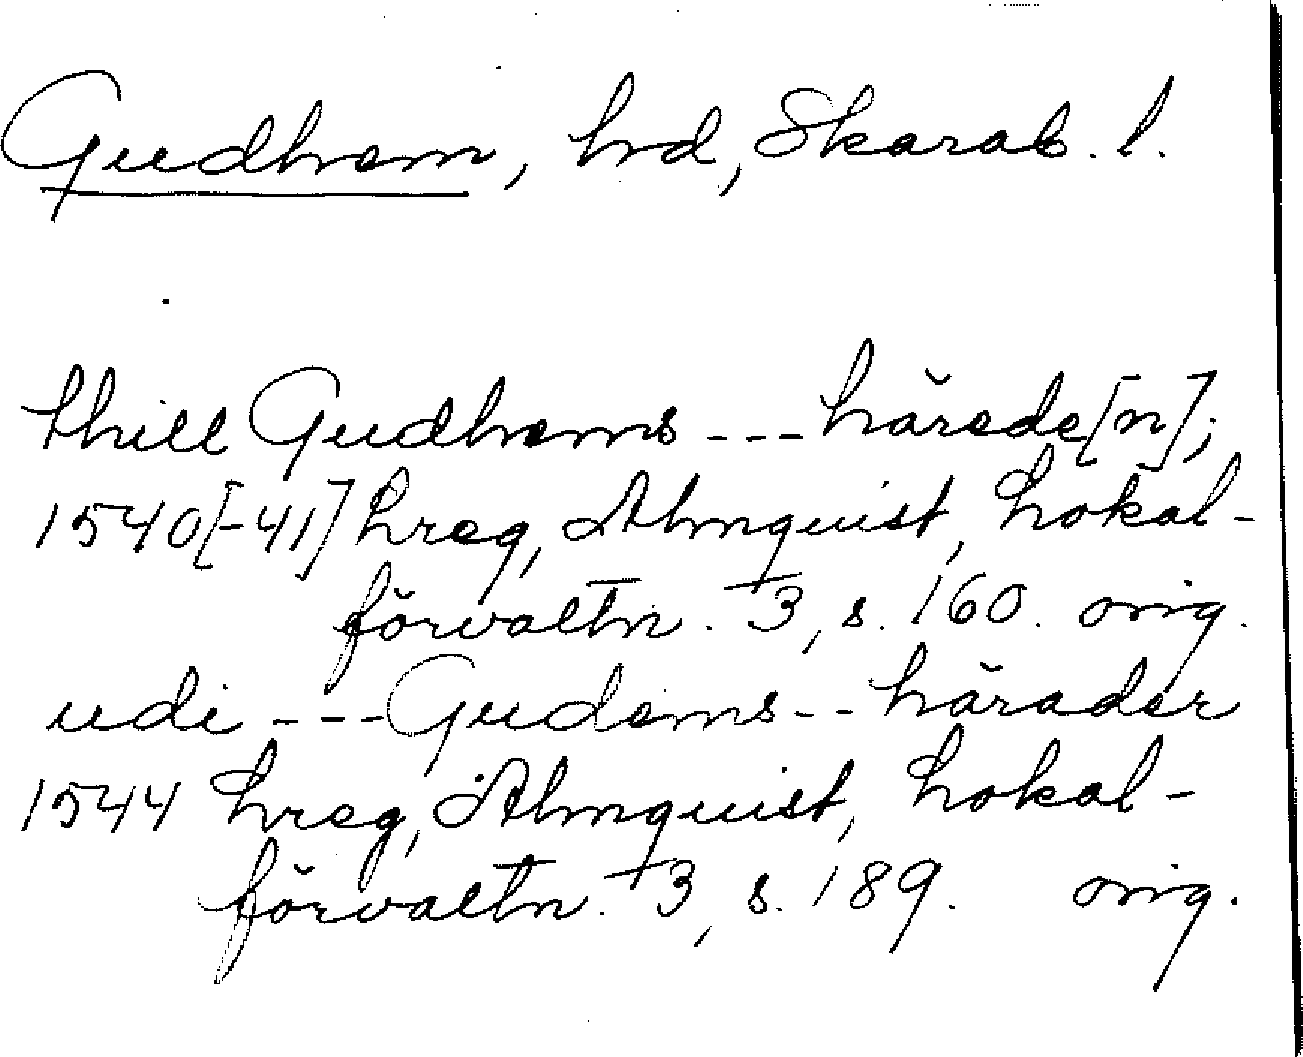 Gudhem, hrd, Skarab. l.
thill Gudhems --- härede[n];
1540[-41] hreg, Almquist, Lokal-
förvaltn. 3, s. 160. orig.
udi --- Gudems -- härader
1544 hreg, Almquist, Lokal-
förvaltn. 3, s. 189. orig.